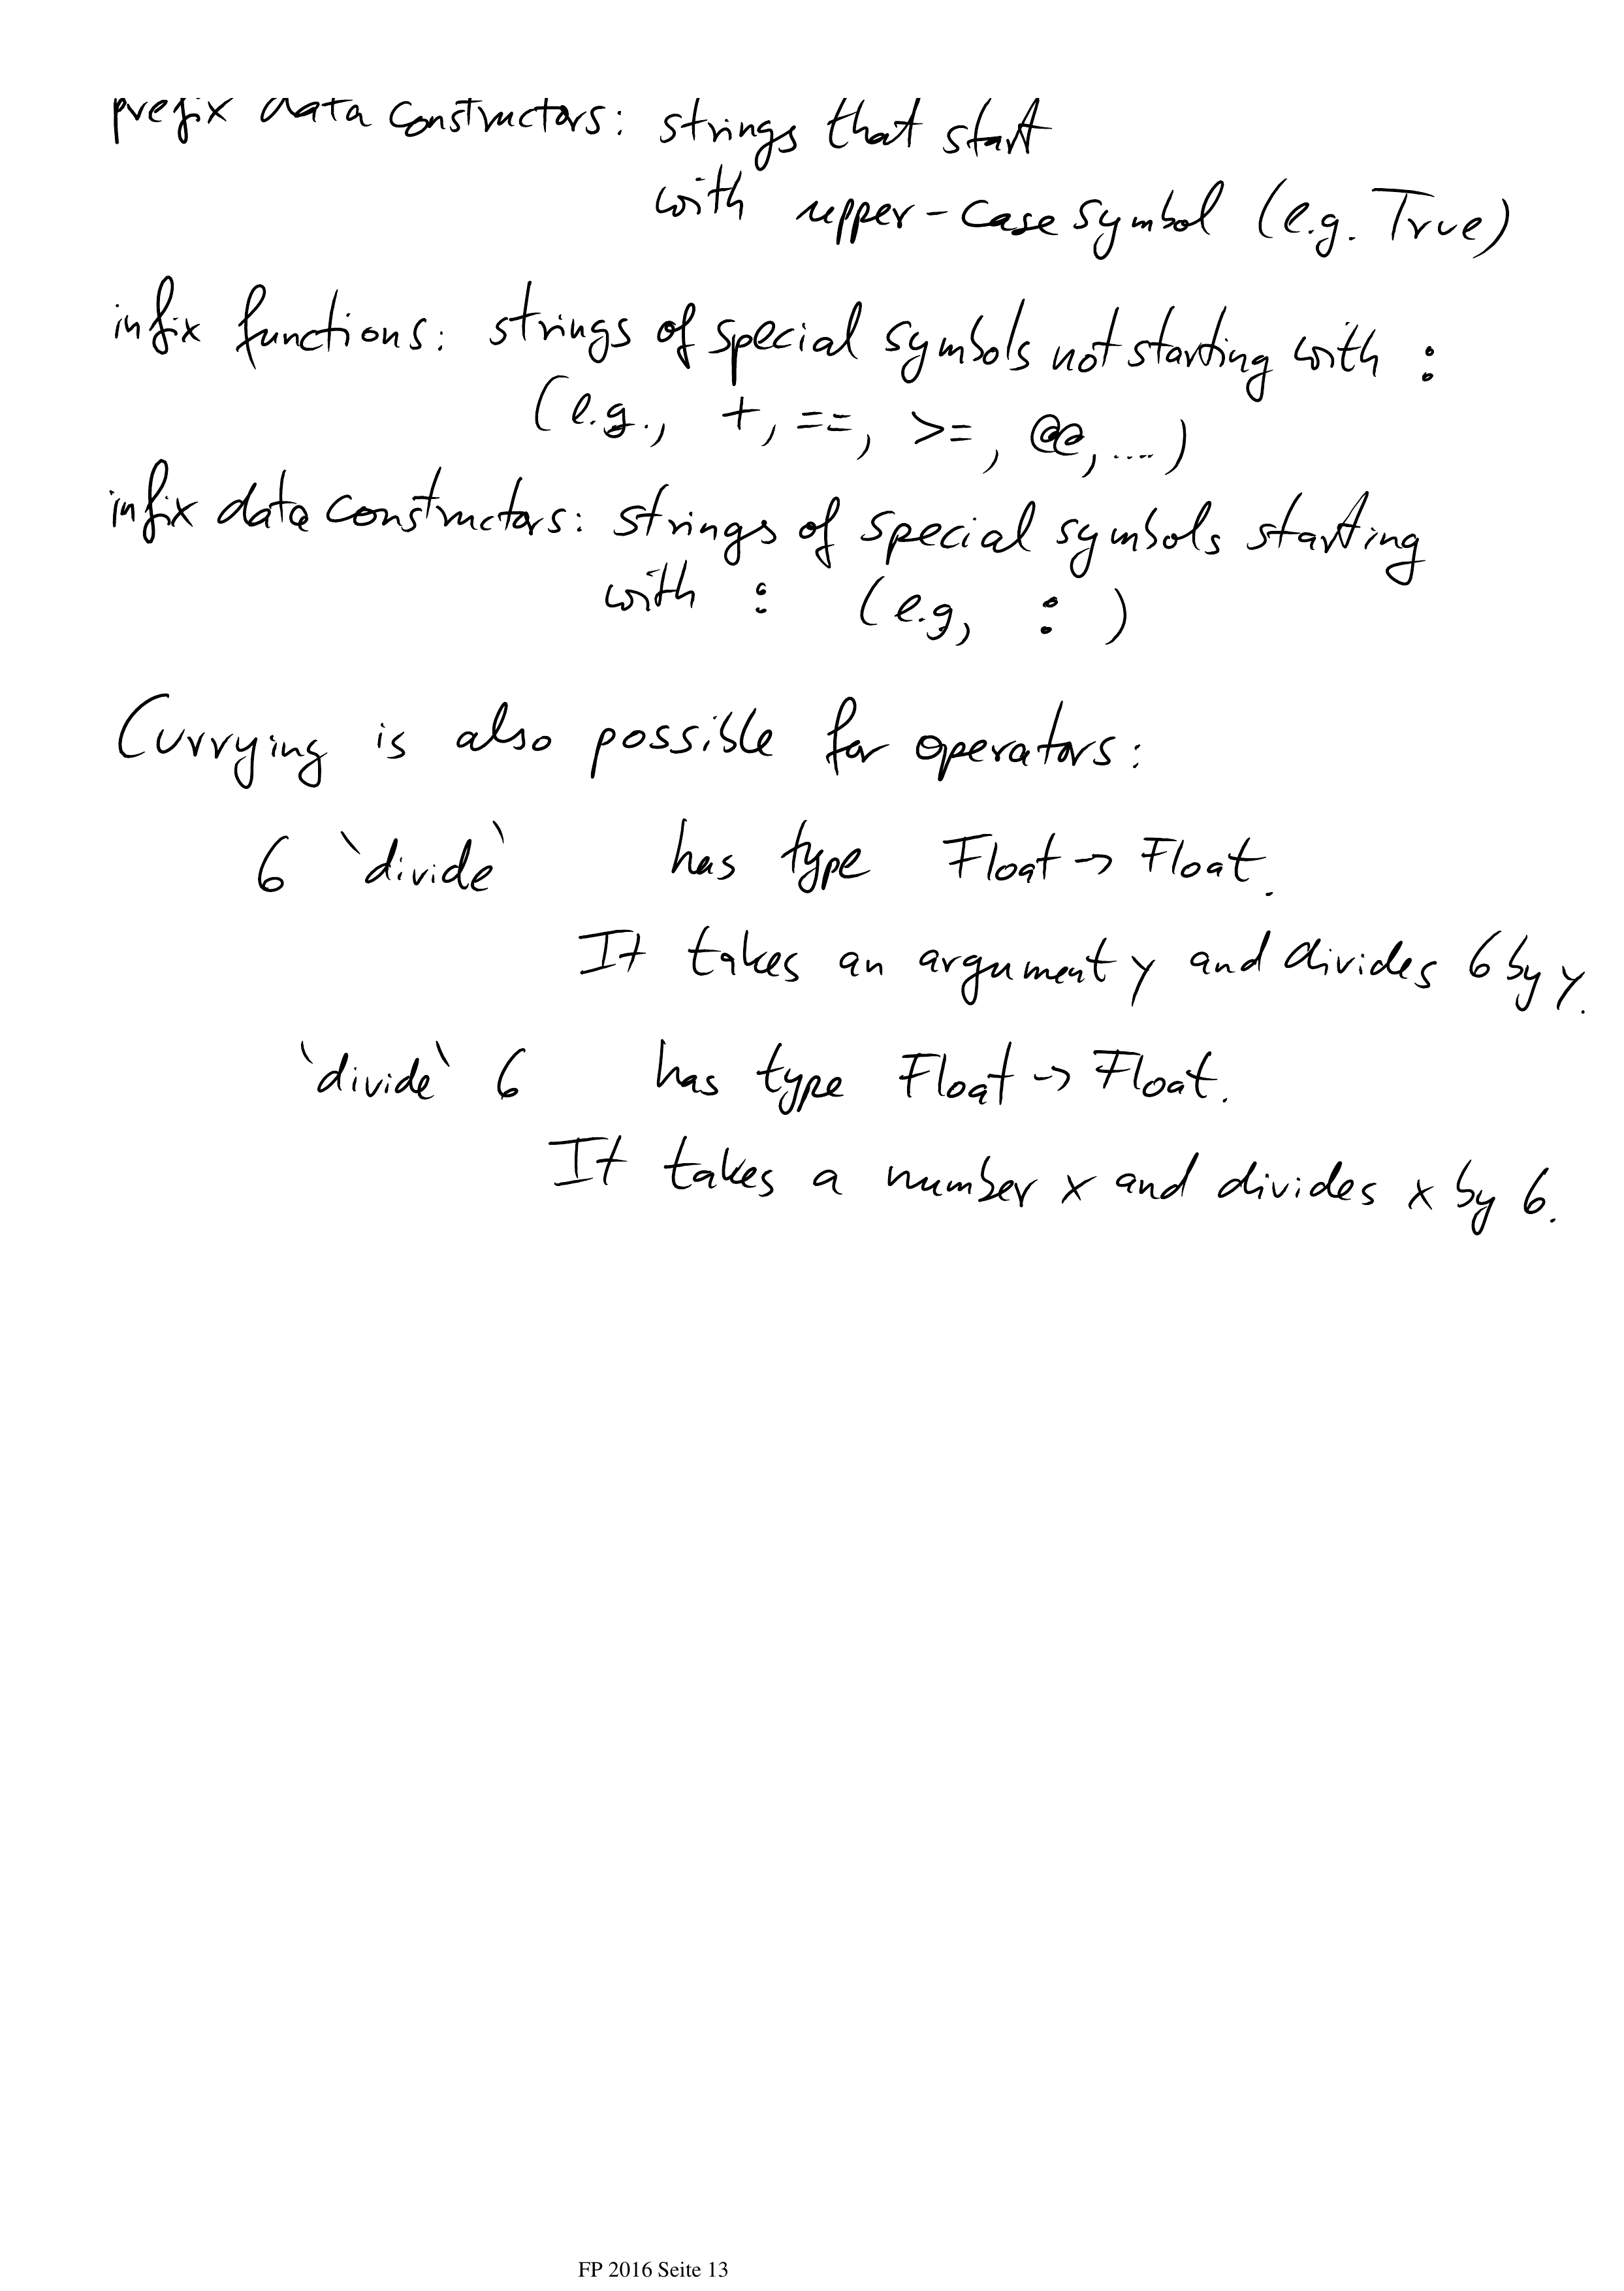 prefix data constructors: strings that start
with upper-case symbol (e.g. True)
infix functions: strings of special symbols not starting with :
(e.g., +, ==, >=, @@, ....)
infix data constructors: strings of special symbols starting
with : (e.g, : )
Currying is also possible for operators:
6 `divide` has type Float -> Float.
It takes an argument y and divides 6 by y.
`divide` 6 has type Float -> Float.
It takes a number x and divides x by 6.
FP 2016 Seite 13